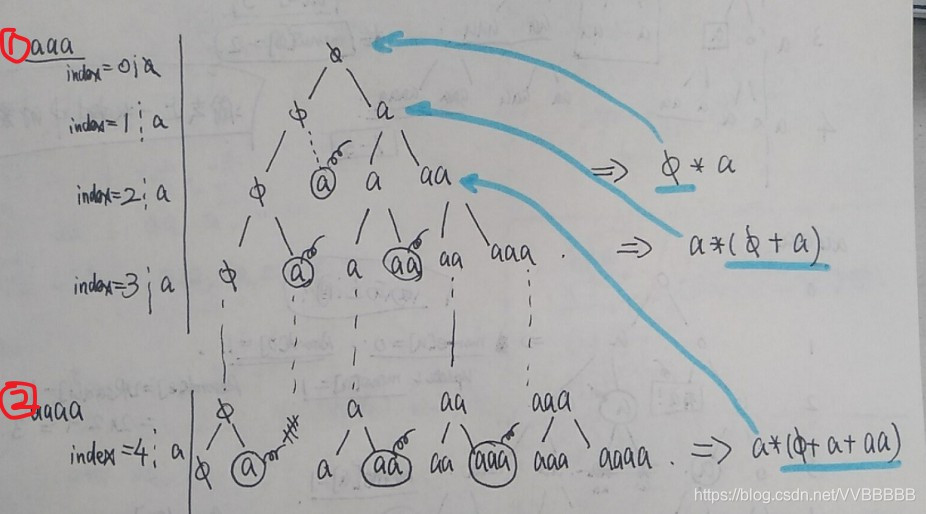 ① aaa
index=0; a
ϕ
index=1; a
ϕ a
⇒ ϕ * a
index=2; a
ϕ a a aa
⇒ a*(ϕ + a)
index=3; a
ϕ a a aa aa aaa .
② aaaa
ϕ a aa aaa
index=4; a
ϕ a a aa aa aaa aaa aaaa .
⇒ a*(ϕ+a+aa)
https://blog.csdn.net/VVBBBBB